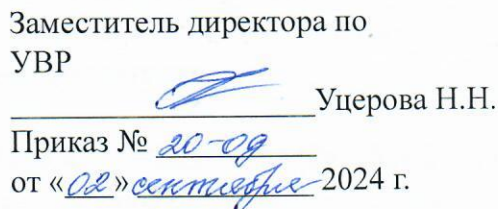 Заместитель директора по
УВР
Уцерова Н.Н.
Приказ № 20-од
от «02» сентября 2024 г.